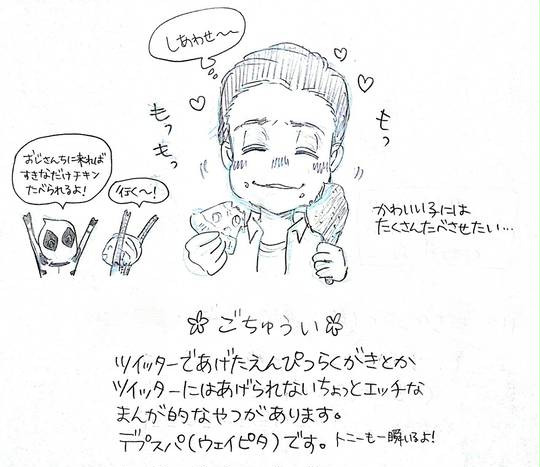 しあわせ〜〜
もっ
もっ
もっ
おじさんちに来れば
すきなだけチキン
たべられるよ!
行く〜!
かわいい子には
たくさんたべさせたい…
ごちゅうい
ツイッターであげたえんぴつらくがきとか
ツイッターにはあげられないちょっとエッチな
まんが的なやつがあります。
デプスパ(ウェイピタ)です。トニーも一瞬いるよ!